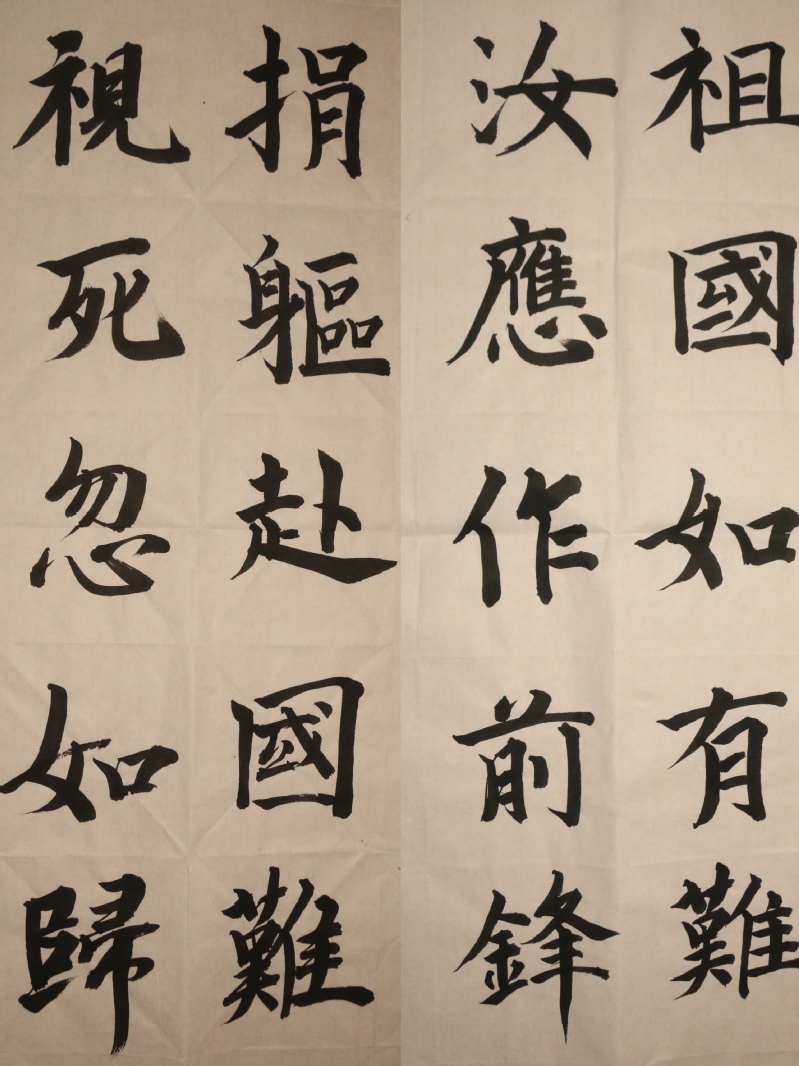 祖國如有難
汝應作前鋒
捐軀赴國難
視死忽如歸